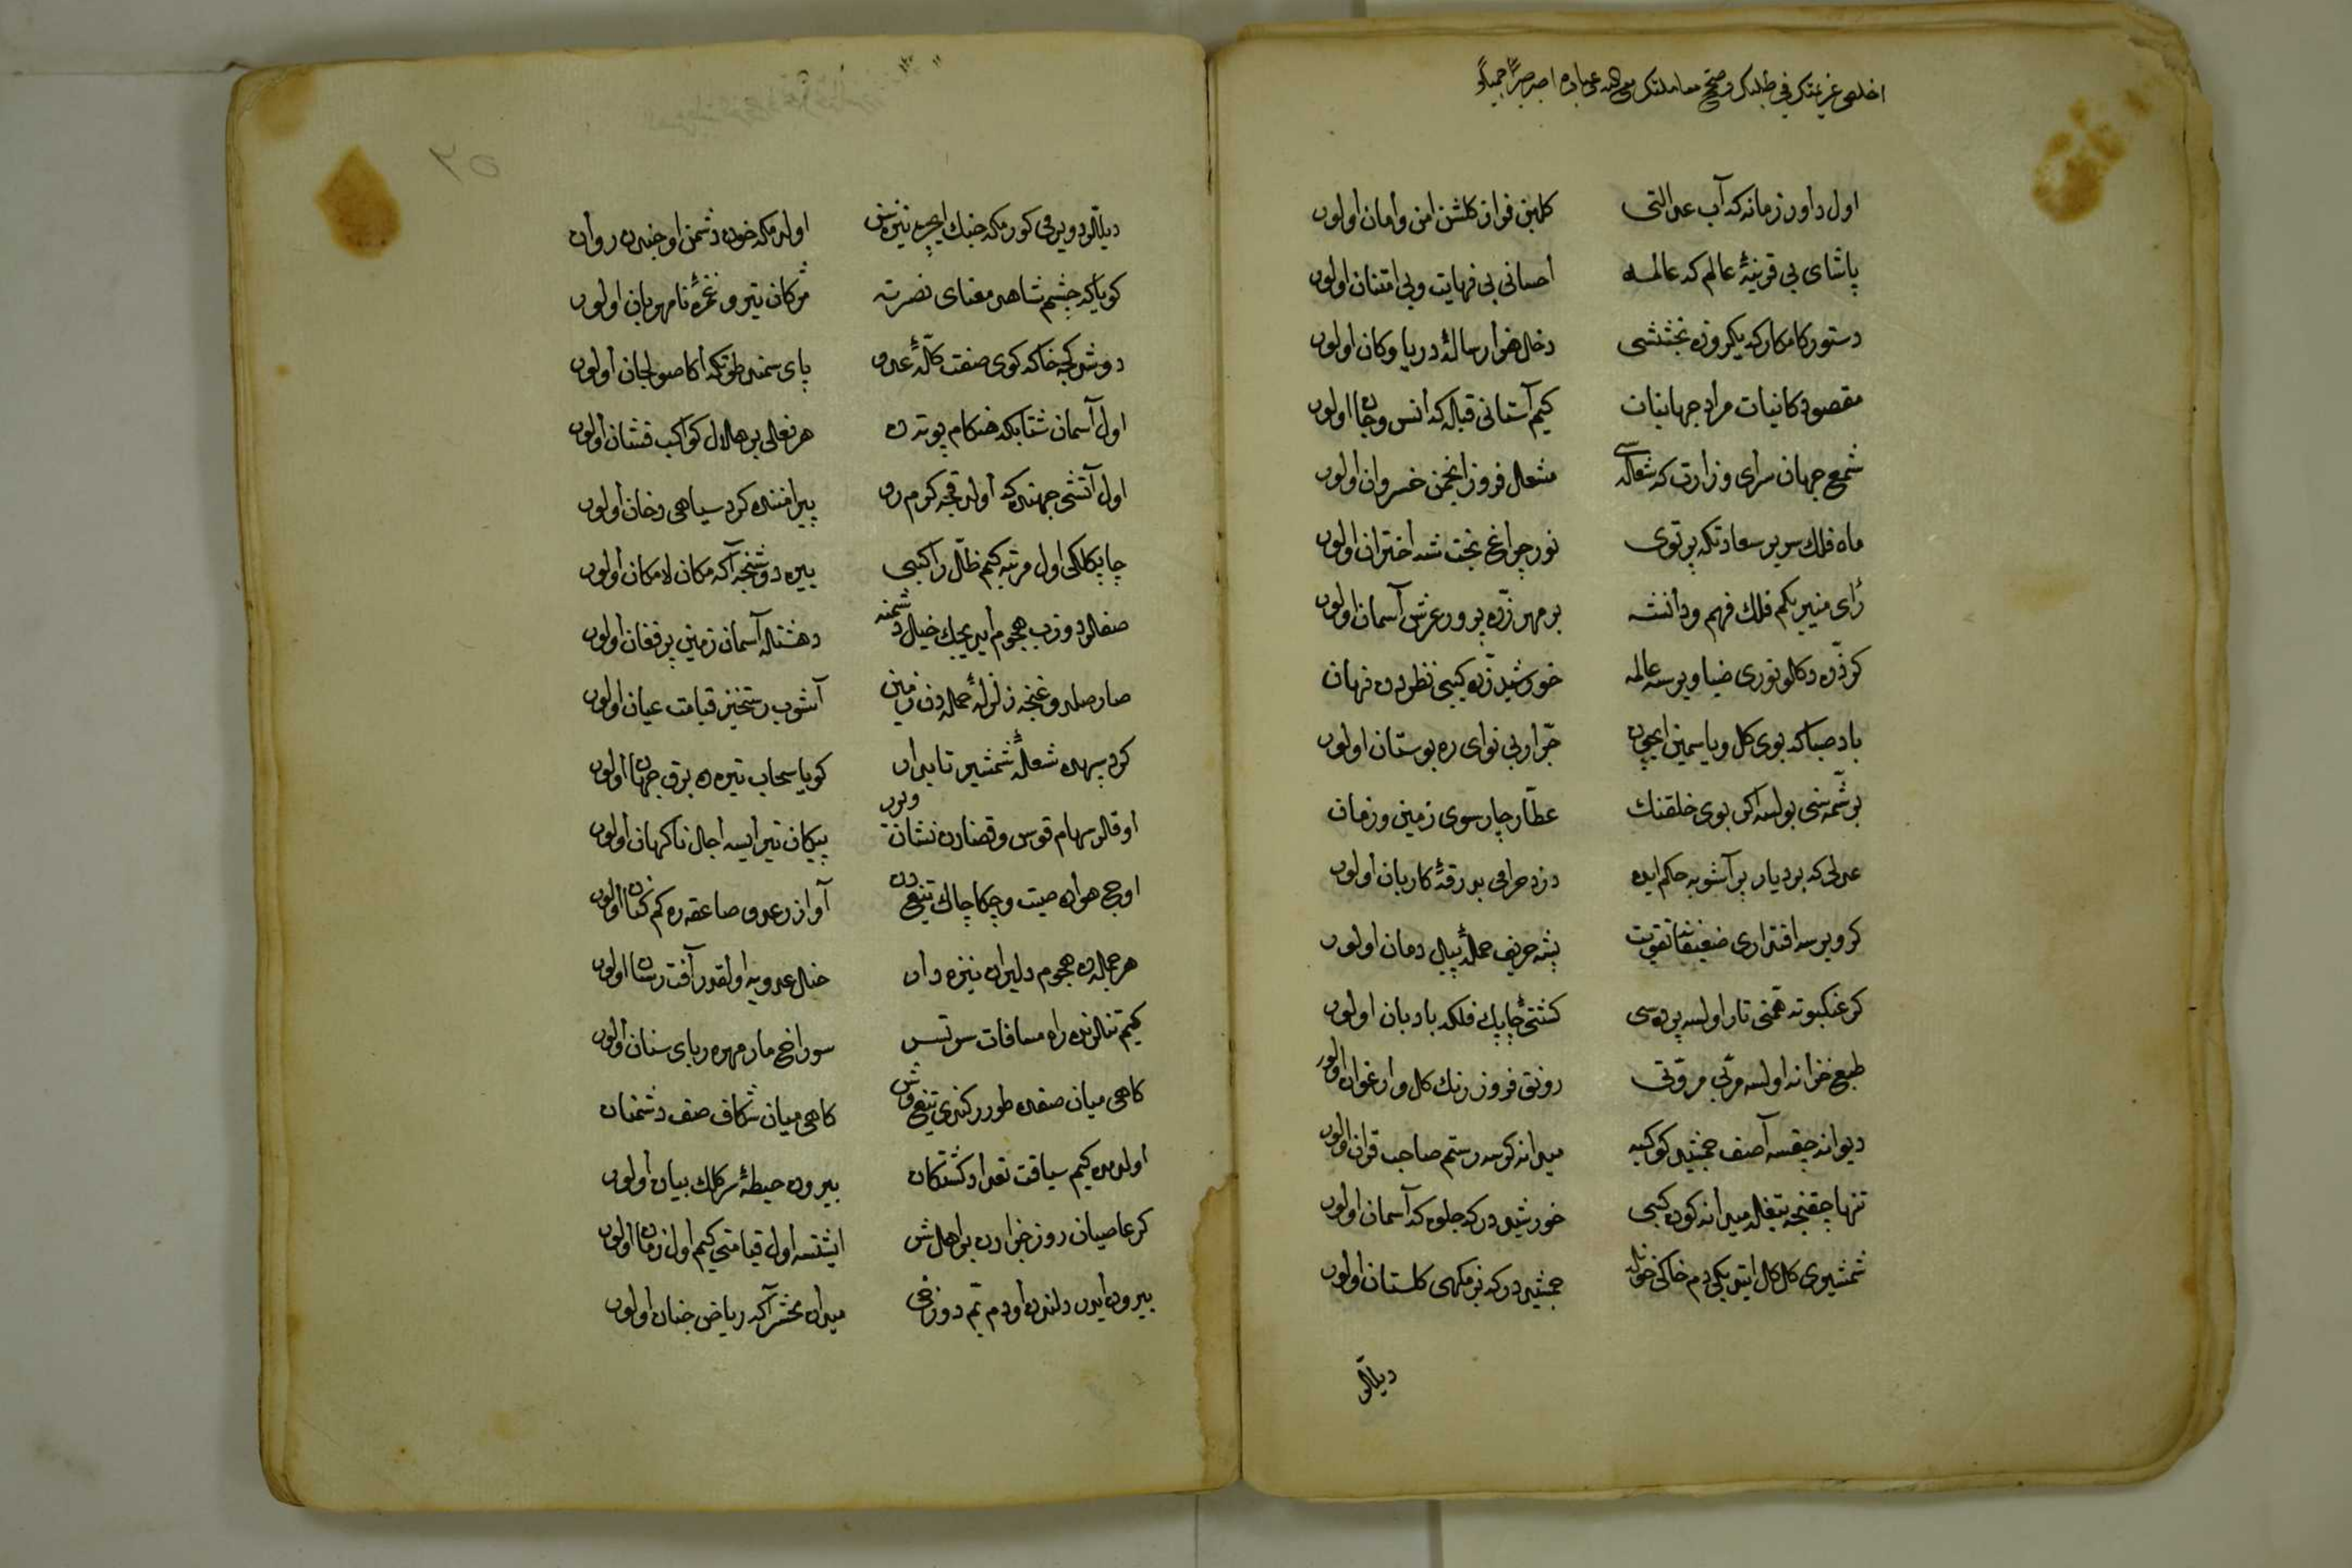 اول داور زمانه که آب عدالتی کلبن فراز کلشن امن و امان اولور
پاشای بی قرینهٔ عالم که عالمه احسانی بی نهایت و بی امتنان اولور
دستور کامکار که بکروزه بخششی دخل هزار سالهٔ دریا و کان اولور
مقصود کائنات مراد جهانیان کیم آستانی قبله که انس و جان اولور
شمع جهان سرای وزارت که شعله سی مشعل فروز انجمن خسروان اولور
ماه فلك سریر سعادتکه پرتوی نور چراغ بخت شه اختران اولور
رای منیری کم فلك فهم و دانشه بر مهر ذره پرور عرش آسمان اولور
کر ذره دکلو نوری ضیا ویرسه عالمه خورشید ذره کیبی نظردن نهان
باد صبا که بوی کل و یاسمین ایچون جرار بی نوای ره بوستان اولور
بر شمه سنی بولسه اکر بوی خلقنك عطار چار سوی زمین و زمان
عدلی که بر دیار پر آشوبه حکم ایده دزد حرامی بدرقهٔ کاربان اولور
کر ویرسه اقتداری ضعیفانه تقویت پشه حریف حملهٔ پیل دمان اولور
کر عنکبوته همتی تار اولسه پرده سی کشتیٔ چاپك فلکه بادبان اولور
طبع خزانه اولسه مربی مروتی رونق فروز رنك کل و ارغوان اولور
دیوانه چیقسه آصف جمشید کوکبه میدانه کورسه رستم صاحب قران اولور
تنها چیقنجه تیغله میدانه کون کیبی خورشیددر که جلوه که آسمان اولور
شمشیری کل کل ایتدی یکی دم خاکی خونله جمشیددر که بزمکهی کلستان اولور
دیللر
دیللر ویردی کورمکه جنك ایچره نیزه سن اولدمکه خون دشمن او جنبدن روان
کویا که چشم شاهد معنای نصرته مژکان تیر و غمزهٔ نامهربان اولور
دوشدکجه خاکه کوی صفت کلهٔ عدو پای سمندی طوتکه اکا صولجان اولور
اول آسمان شتابکه هنکام پویه ده هر نعلی بر هلال کواکب فشان اولور
اول آتشی جهنده که اولدقجه کرم رو پیرامننده کرد سیاهی دخان اولور
چاپکلکی اول مرتبه کیم ظل راکبی ییره دوشنجه آکه مکان لامکان اولور
صفلر دوزوب هجوم ایدیجك خیل دشمنه دهشتله آسمان زمین پر فغان اولور
صارصلدوغنجه زلزلهٔ حمله دن زمین آشوب رستخیز قیامت عیان اولور
کرد سپهده شعلهٔ شمشیر تابدار کویا سحاب تیره ده برق جهان اولور
اوقلر سهام قوس و قضادن نشان ویرور پیکان تیر ایسه اجل ناکهان اولور
اوج هواده صیت و چکاچاك تیغدن آواز رعد و صاعقه ده کم نشان اولور
هر حمله ده هجوم دلیران نیزه دار خیل عدویه اولقدر آفت رسان اولور
کیم تنلرنده راه مسافات سرتسر سوراخ مار مهره ربای سنان اولور
کاهی میان صفده طورر کندی تیغ وش کاهی میان شکاف صف دشمنان
اولدمده کیم سیاقت تعداد کشتکان بیرون حیطهٔ سر کلك بیان اولور
کر عاصیان روز جزادن بو اهل ش ایشتسه اول قیامتی کیم اول زمان اولور
بیرون ایدر دلندن او دم بیم دوزخی میدان محشر آکه ریاض جنان اولور